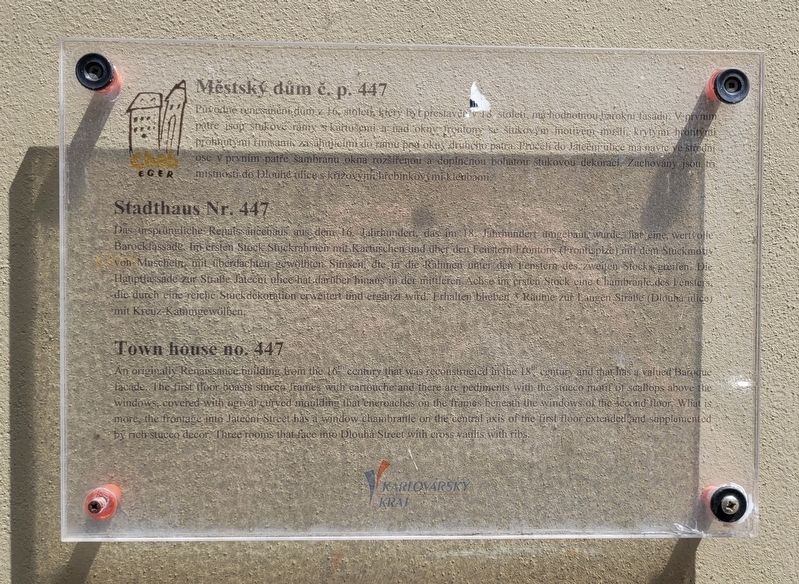 Městský dům č. p. 447
Původně renesanční dům z 16. století, který byl přestavěn v 18. století, má hodnotnou barokní fasádu. V prvním
patře jsou štukové rámy s kartušemi a nad okny frontony se štukovým motivem mušlí, krytými
římsami, zasahujícími do rámů pod okny druhého patra. Průčelí do Jateční ulice má navíc ve střední
ose v prvním patře šambránu okna rozšířenou a doplněnou bohatou štukovou dekorací. Zachovány jsou
místnosti do Dlouhé ulice s křížovými hřebínkovými klenbami.
Cheb
EGER
Stadthaus Nr. 447
Das ursprüngliche Renaissancehaus aus dem 16. Jahrhundert, das im 18. Jahrhundert umgebaut wurde, hat eine wertvolle
Barockfassade. Im ersten Stock Stuckrahmen mit Kartuschen und über den Fenstern Frontons (Frontispize) mit dem Stuckmotiv
von Muscheln, mit überdachten gewölbten Simsen, die in die Rahmen unter den Fenstern des zweiten Stocks greifen. Die
Hauptfassade zur Straße Jateční ulice hat darüber hinaus in der mittleren Achse im ersten Stock eine Chambranle des Fensters,
die durch eine reiche Stuckdekoration erweitert und ergänzt wird. Erhalten blieben 3 Räume zur Langen Straße (Dlouhá ulice)
mit Kreuz-Kammgewölben.
Town house no. 447
An originally Renaissance building from the 16th century that was reconstructed in the 18th century and that has a valued Baroque
facade. The first floor boasts stucco frames with cartouche and there are pediments with the stucco motif of scallops above the
windows, covered with ogival curved moulding that encroaches on the frames beneath the windows of the second floor. What is
more, the frontage into Jateční Street has a window chambranle on the central axis of the first floor extended and supplemented
by rich stucco decor. Three rooms that face into Dlouhá Street with cross vaults with ribs.
KARLOVARSKÝ
KRAJ